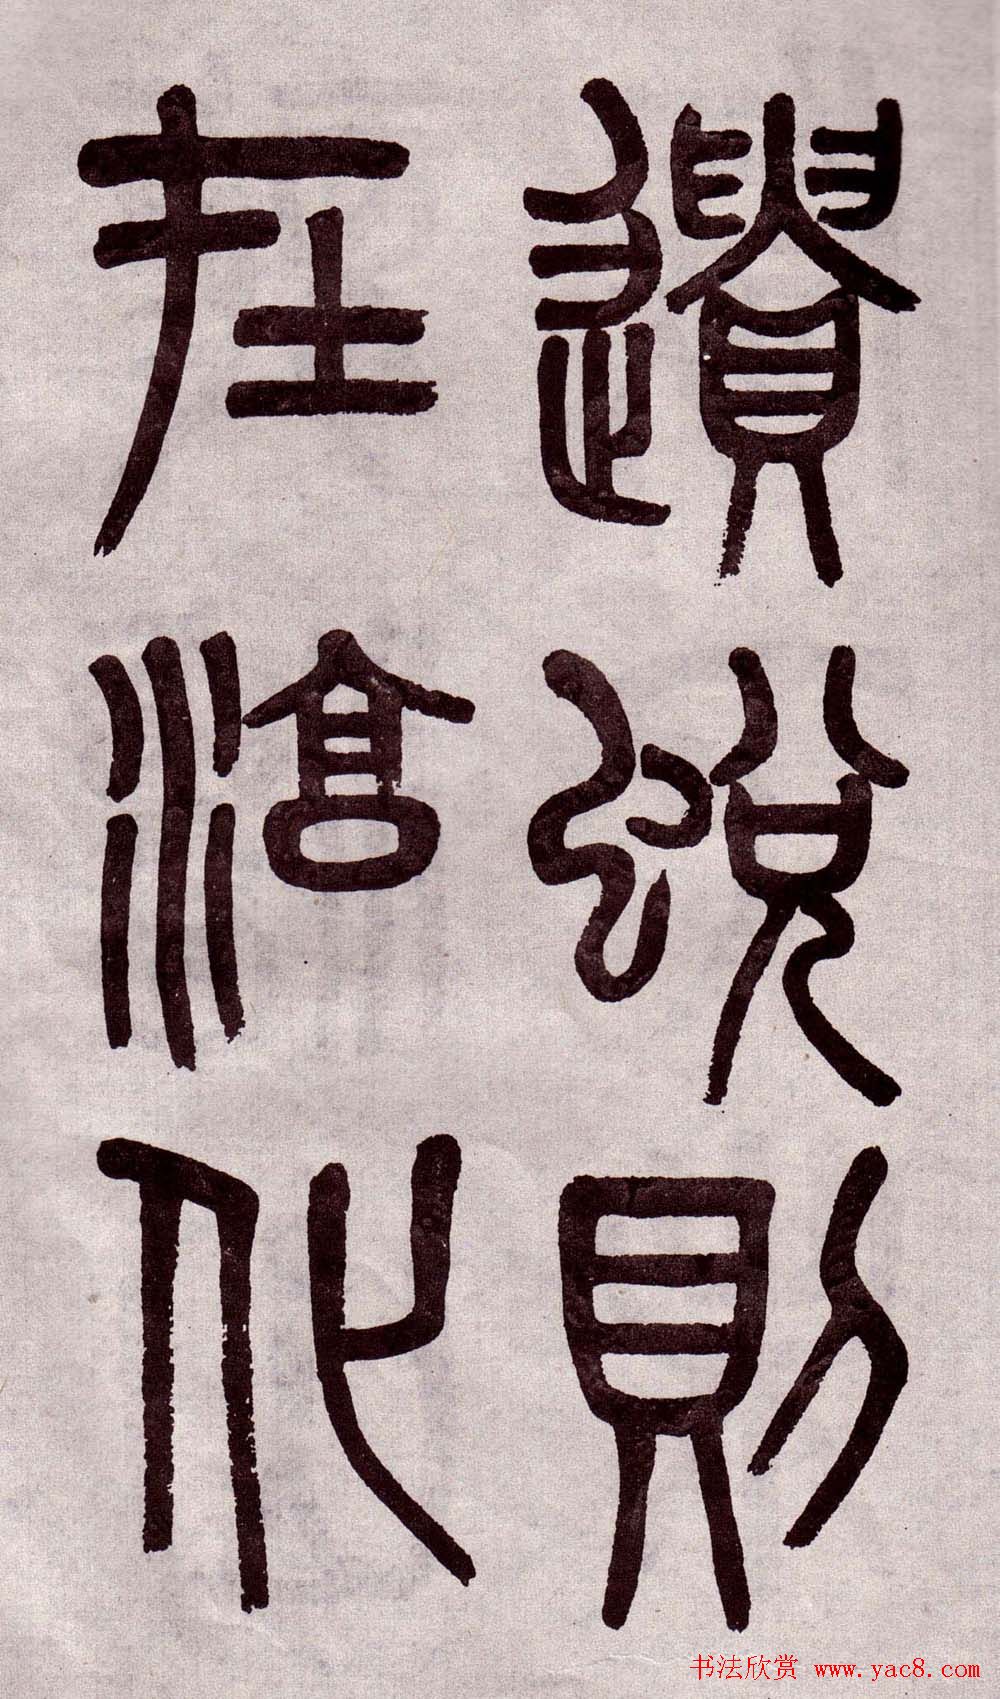 遺蛻則
在滄化
书法欣赏 www.yac8.com